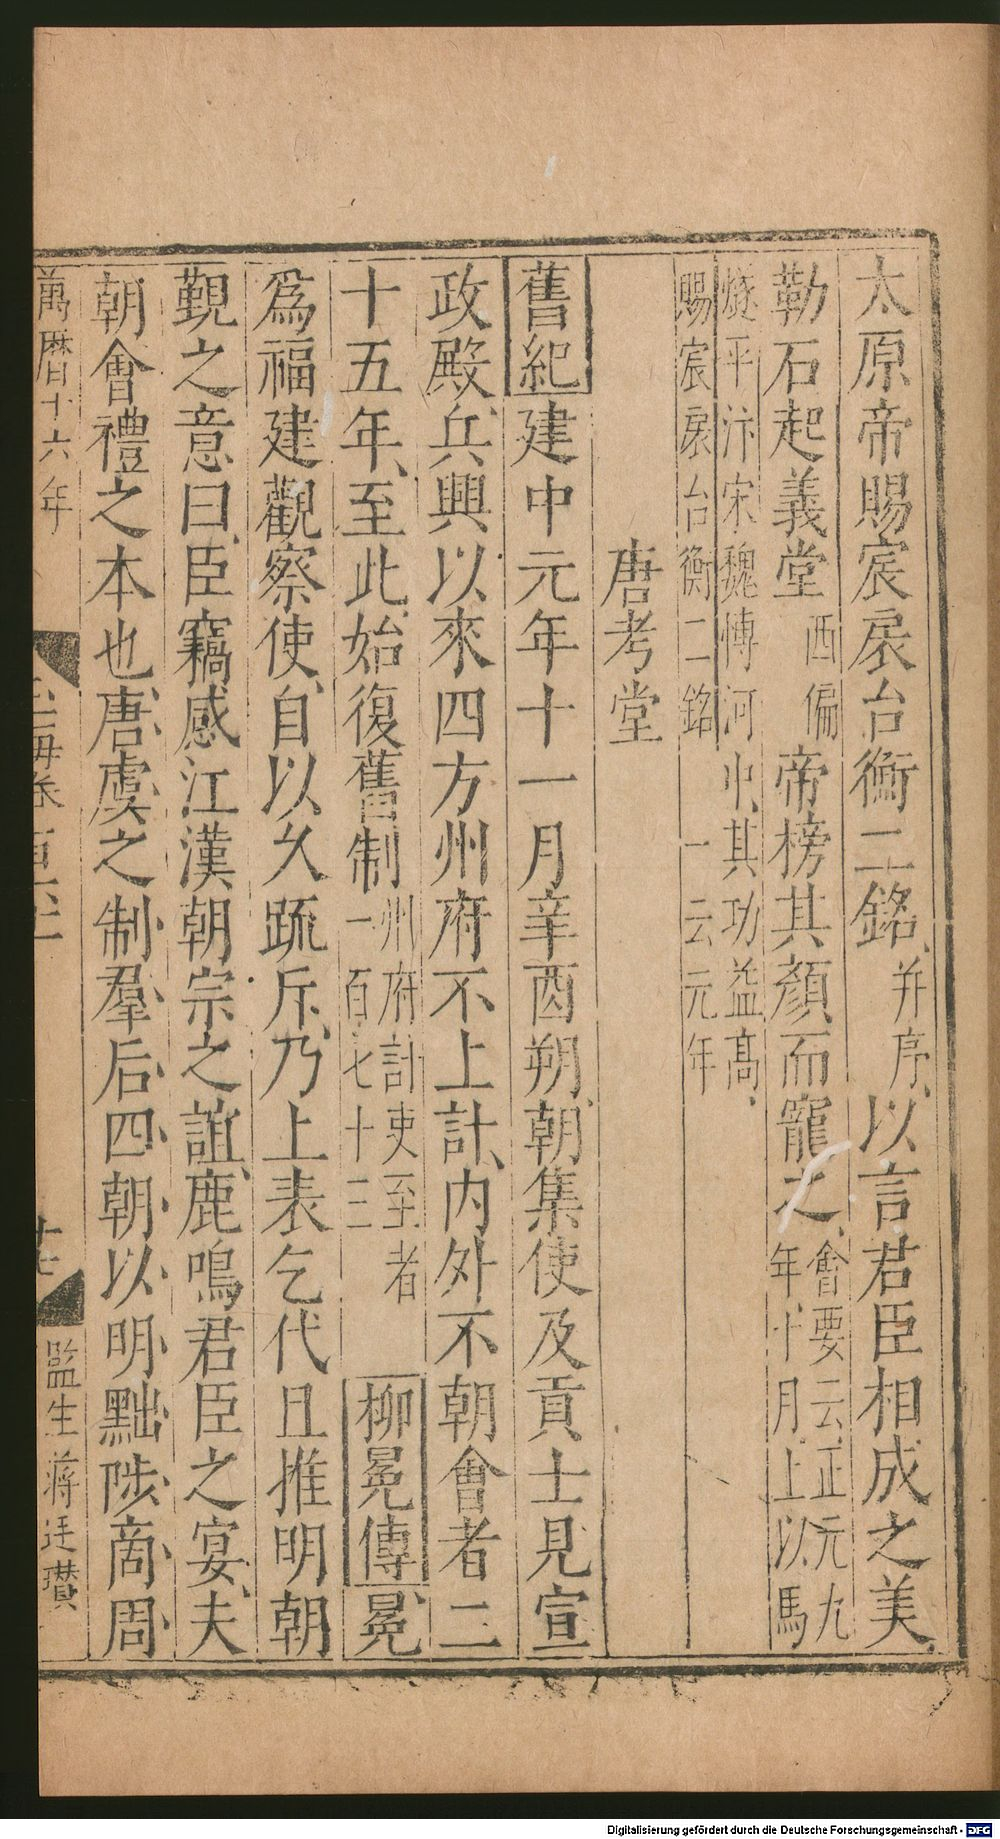 太原帝賜宸扆台衡二銘并序以言君臣相成之美
勒石起義堂西偏帝榜其顏而寵之會要云正元九年十月上以馬
燧平汴宋魏博河中其功益高
賜宸扆台衡二銘一云元年
唐考堂
舊紀建中元年十一月辛酉朔朝集使及貢士見宣
政殿兵興以來四方州府不上計內外不朝會者二
十五年至此始復舊制州府計吏至者一百七十三柳冕傳冕
爲福建觀察使自以久疏斥乃上表乞代且推明朝
覲之意曰臣竊感江漢朝宗之誼鹿鳴君臣之宴夫
朝會禮之本也唐虞之制羣后四朝以明黜陟商周
萬曆十六年
玉海卷百六十一
十七
監生蔣廷瓚
Digitalisierung gefördert durch die Deutsche Forschungsgemeinschaft - DFG